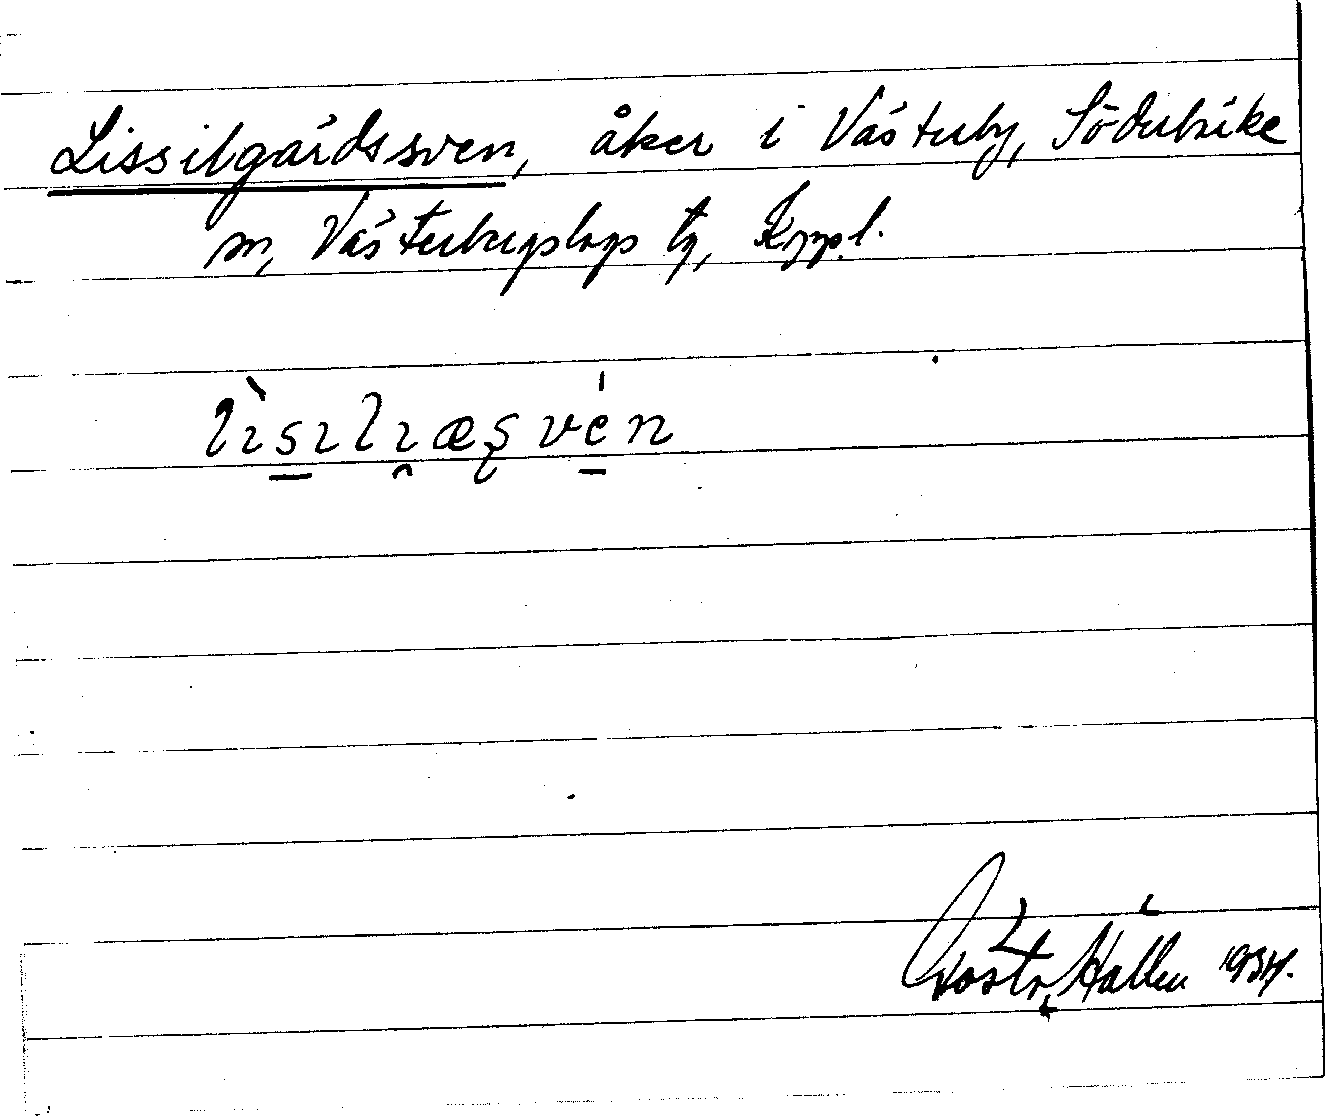 Lissilgårdssven, åker i Västerby, Söderbärke
sn, Västerbergslags tg, Kppl.
lìsılı̯æşvén
Hallen 1934.